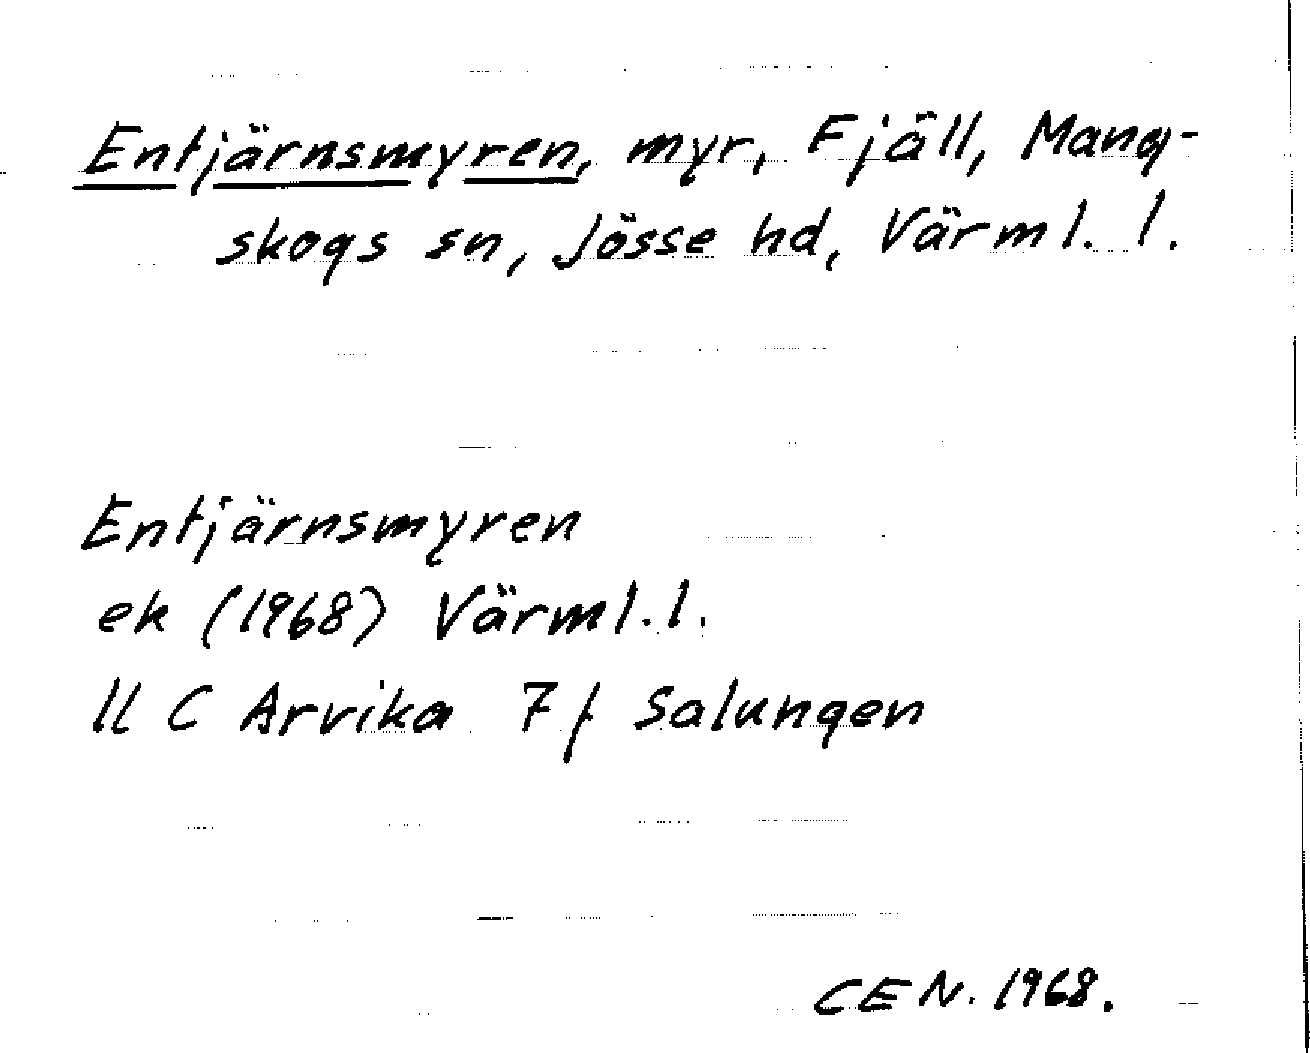 Entjärnsmyren, myr, Fjäll, Mang-
skogs sn, Jösse hd, Värml. l.
Entjärnsmyren
ek (1968) Värml. l.
11 C Arvika 7 f Salungen
CEN. 1968.